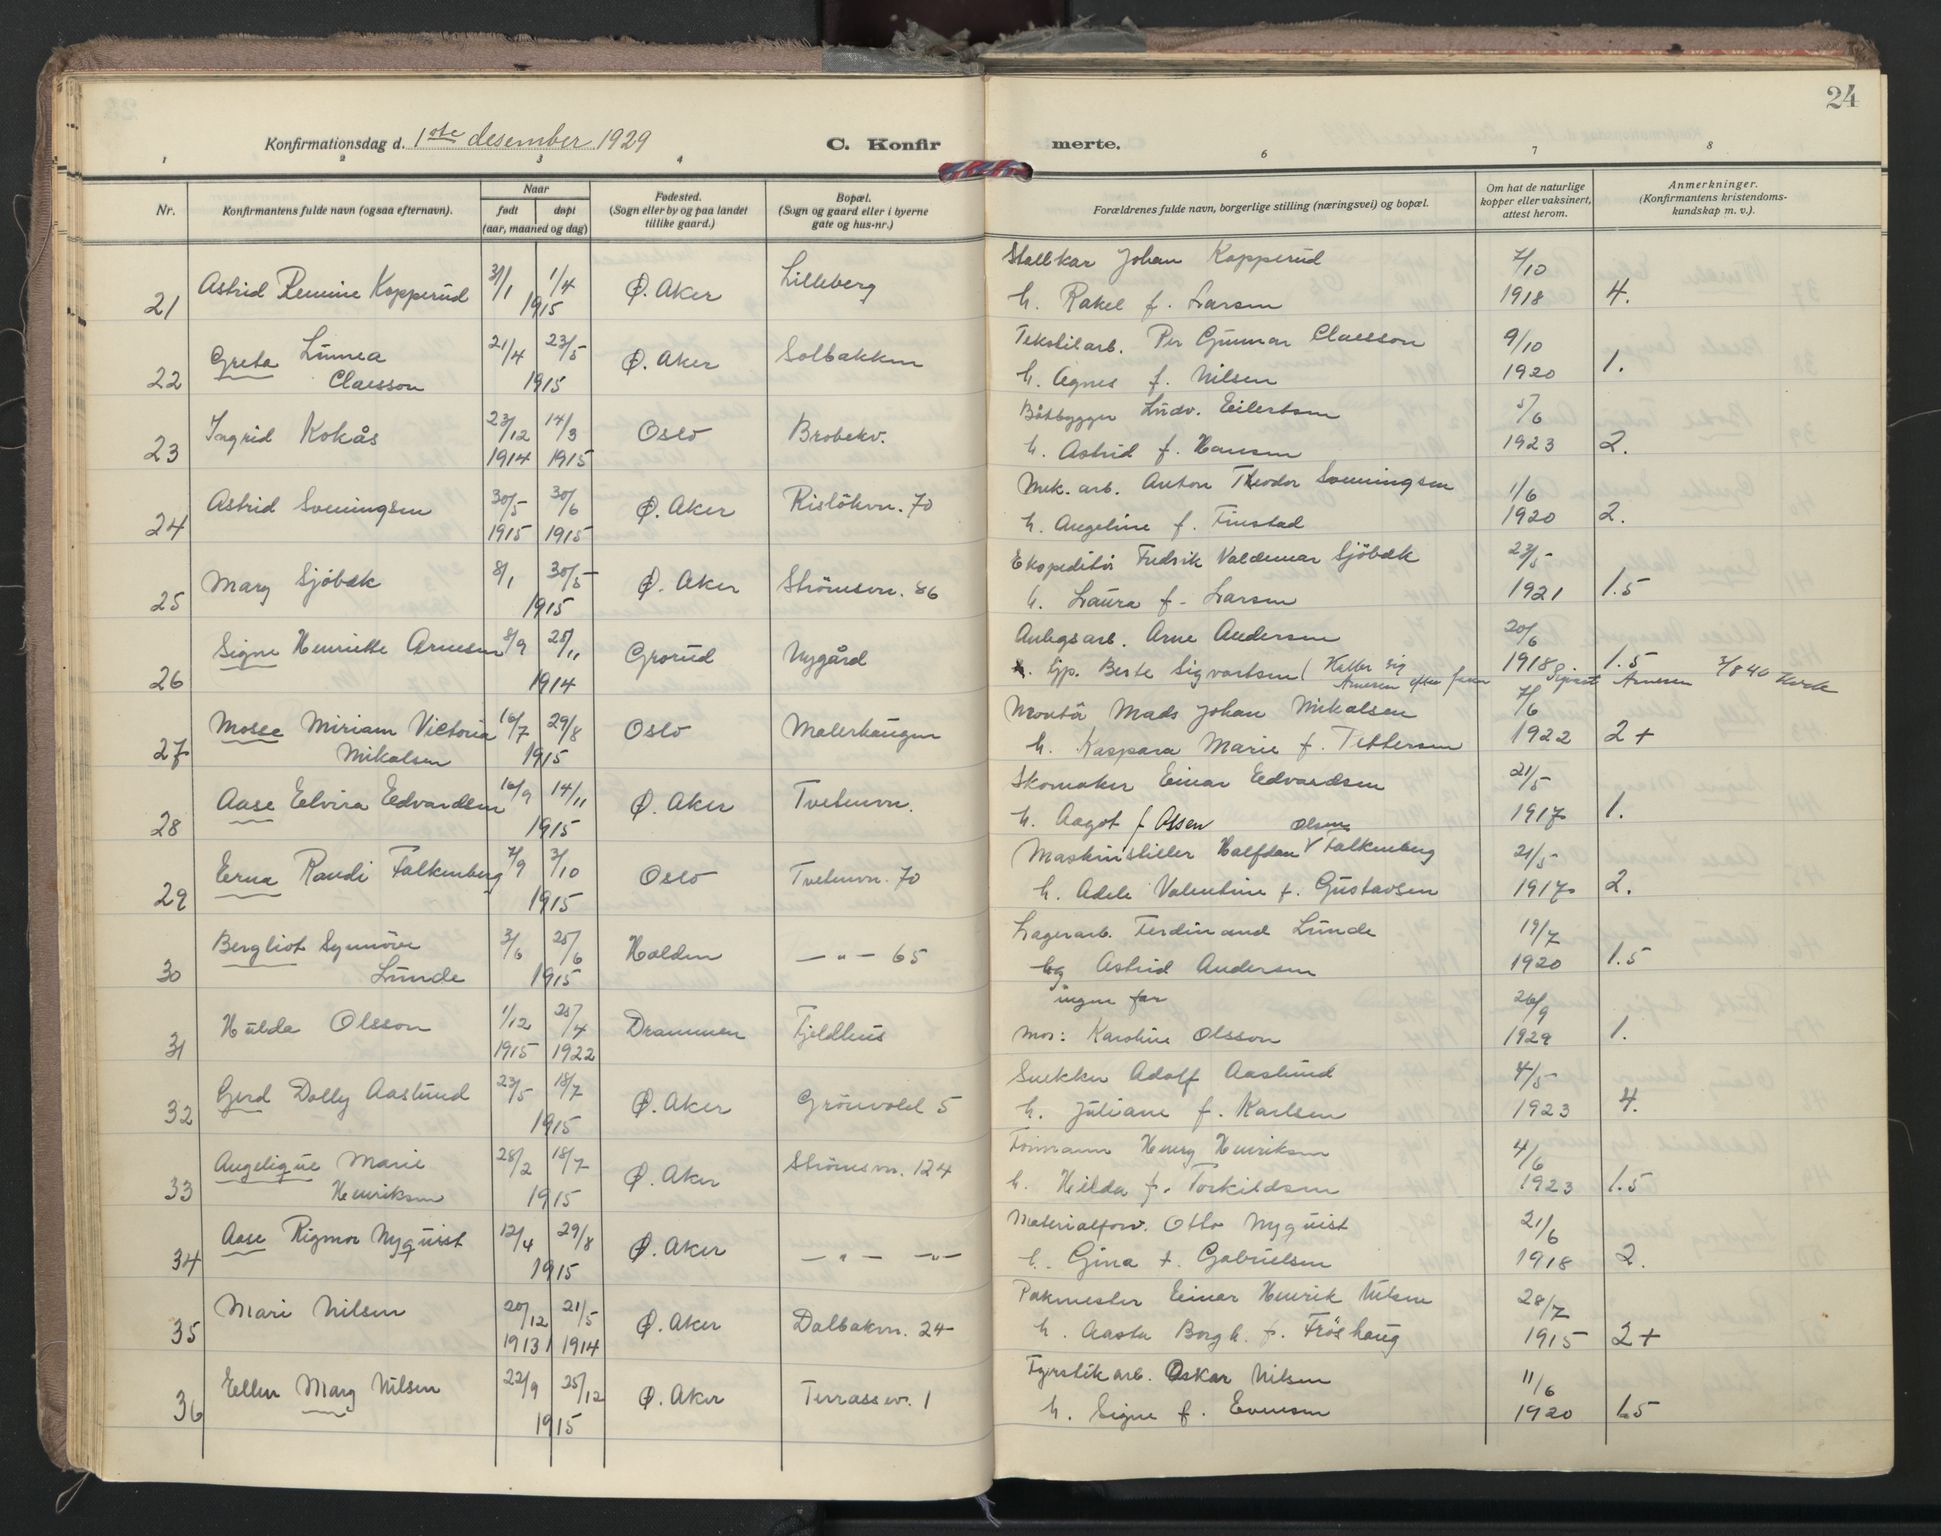 24
Konfirmationsdag d. 1ste desember 1929 C. Konfirmerte.
1 2 3 4 6 7 8
Nr. Konfirmantens fulde navn (ogsaa efternavn). Naar født døpt (aar, maaned og dag) Fødested. (Sogn eller by og paa landet tillike gaard.) Bopæl. (Sogn og gaard eller i byerne gate og hus-nr.) Forældrenes fulde navn, borgerlige stilling (næringsvei) og bopæl. Om hat de naturlige kopper eller vaksinert, attest herom. Anmerkninger. (Konfirmantens kristendoms-kundskap m. v.).
21 Astrid Kopperud 1/4 1915 Ø. Aker Lilleberg Stallkar Johan Kopperud 7/10
h. Rakel f. Larsen 1918 4.
22 Greta Linnea 21/4 23/5 Ø. Aker Solbakken Tekstilarb. Per Gunnar Claesson 9/10
Claesson 1915 h. Agnes f. Nilsen 1920 1.
23 Ingrid Kokås 23/12 14/3 Oslo Brobekv. Båtbygger Ludv. Eilertsen 5/6
1914 1915 h. Astrid f. Hansen 1923 2.
24 Astrid Sveningsen 30/5 30/6 Ø. Aker Risløkvn. 70 Mek. arb. Anton Theodor Sveningsen 1/6
1915 1915 h. Angeline f. Finstad 1920 2.
25 Mary Sjöbæk 8/1 30/5 Ø. Aker Strömsvn. 86 Ekspeditör Fredrik Valdemar Sjöbæk 23/5
1915 h. Laura f. Larsen 1921 1.5
26 Signe Henriette Arnesen 8/9 25/11 Grorud Nygård Anlegsarb. Arne Andersen 20/6
1914 Gjp. Berte Sigvartsen (Kaller sig Arnesen efter faren 1918 1.5 Arnesen
27 Mosse Miriam Victoria 16/7 29/8 Oslo Malerhaugen Montör Mads Johan Mikalsen 7/6
Mikalsen 1915 h. Kaspara Marie f. Pettersen 1922 2+
28 Aase Elvira Edvardsen 16/9 14/11 Ø. Aker Tvetenvn. Skomaker Einar Edvardsen 21/5
1915 h. Aagot f Olsen 1917 1.
29 Erna Randi Falkenberg 7/9 3/10 Oslo Tvetenvn. 70 Maskinstiller Halfdan Olsen Falkenberg 21/5
1915 h. Adele Valentine f. Gustavsen 1917 2.
30 Bergliot Synnöve 3/6 25/6 Halden — „ — 65 Lagerarb. Ferdinand Lunde 19/7
Lunde 1915 og Astrid Andersen 1920 1.5
31 Hulda Olsson 1/12 25/4 Drammen Fjeldhus ingen far 26/9
1915 1922 Mor: Karoline Olsson 1929 1.
32 Gerd Dolly Aaslund 23/5 18/7 Ø. Aker Grönvold 5 Snekker Adolf Aaslund 4/5
1915 h. Juliane f. Karlsen 1923 4.
33 Angelique Marie 28/2 18/7 Ø. Aker Strömsvn. 124 Formann Henry Henriksen 4/6
Henriksen 1915 h. Hilda f. Torkildsen 1923 1.5
34 Aase Rigmor Nyquist 12/4 29/8 Ø. Aker — „ — — „ — Materialforv. Otto Nyquist 21/6
1915 h. Gina f. Gabrielsen 1918 2.
35 Mari Nilsen 20/12 21/5 Ø. Aker Dalbakvn. 24 Pakmester Einar Henrik Nilsen 28/7
1913 1914 h. Aasta Borgh. f. Fröshaug 1915 2+
36 Ellen Mary Nilsen 22/9 25/12 Ø. Aker Terrassev. 1 Fyrstikarb. Oskar Nilsen 11/6
1915 h. Signe f. Evensen 1920 1.5